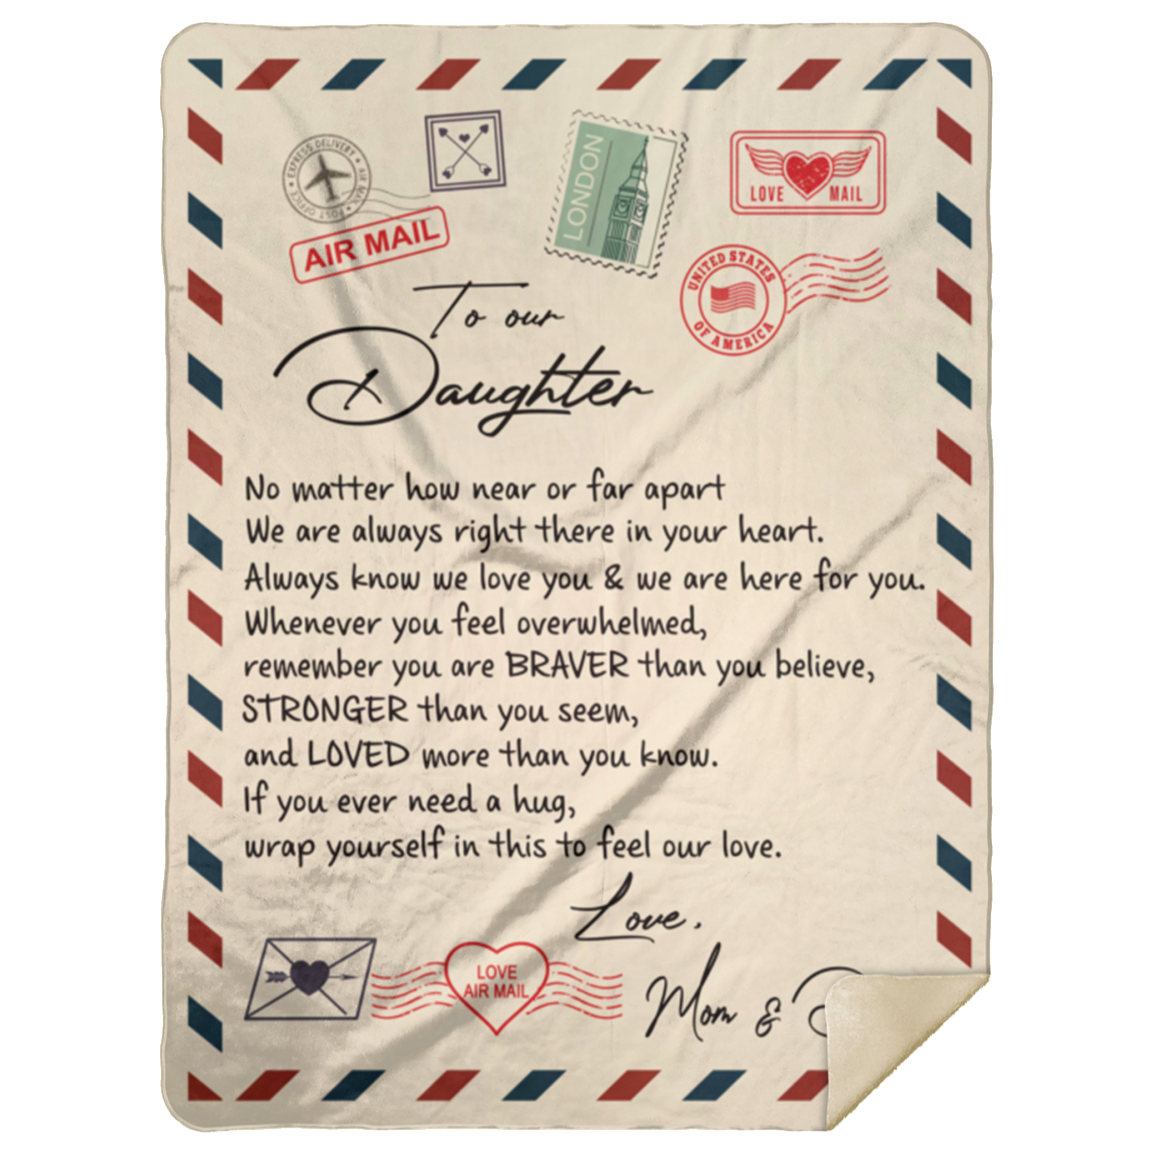 EXPRESS DELIVERY • AIR MAIL • POST OFFICE •
AIR MAIL
LONDON
LOVE MAIL
UNITED STATES
OF AMERICA
To our
Daughter
No matter how near or far apart
We are always right there in your heart.
Always know we love you & we are here for you.
Whenever you feel overwhelmed,
remember you are BRAVER than you believe,
STRONGER than you seem,
and LOVED more than you know.
If you ever need a hug,
wrap yourself in this to feel our love.
Love,
LOVE
AIR MAIL
Mom &